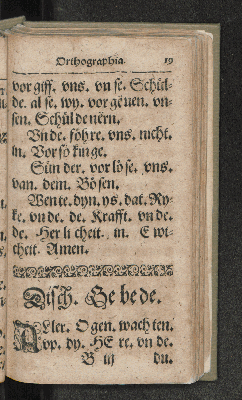 Orthographia. 19
vor giff. vns. vn se. Schül-
de. al se. wy. vor geuen. vn-
sen. Schül de nern.
Vn de. föh re. vns. nicht.
in. Vor sö kin ge.
Sün der. vor lö se. vns.
van. dem. Bö sen.
Wen te. dyn. ys. dat. Ry-
ke. vn de. de. Krafft. vn de.
de. Her li cheit. in. E wi-
cheit. Amen.
Disch. Ge be de.
ALler. O gen. wach ten.
vp. dy. HE re. vn de.
B iij du.